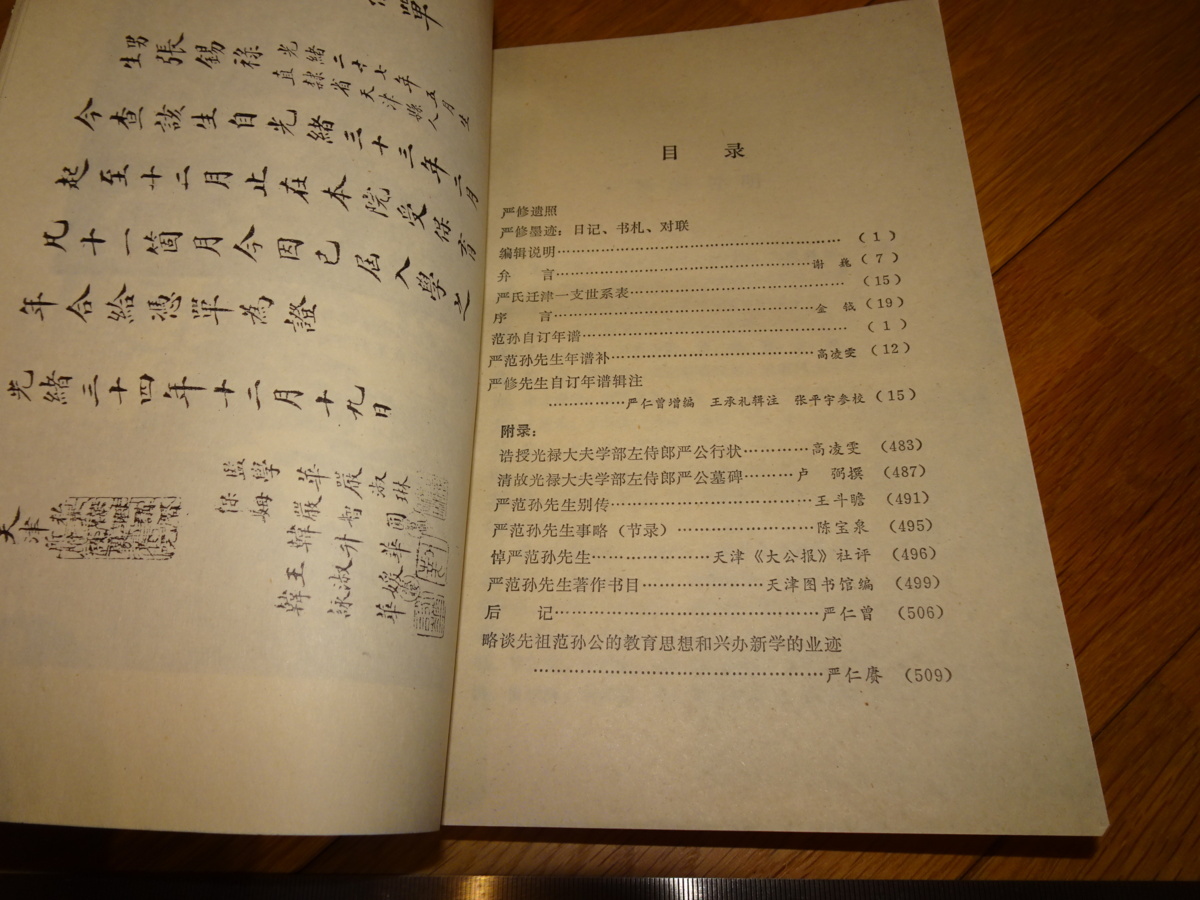 單
男
生
張錫祿
光緒二十七年五月生
直隸省天津縣人
今查該生自光緒三十三年二月
起至十二月止在本院受保育
凡十一箇月今因已屆入學之
年合給憑單為證
光緒三十四年十二月十九日
監學
保姆
天津
目 录
严修遗照
严修墨迹：日记、书札、对联
编辑说明……………………………………（1）
弁　言……………………………………谢巍（7）
严氏迁津一支世系表……………………………（15）
序　言……………………………………金钺（19）
范孙自订年谱……………………………………（1）
严范孙先生年谱补…………………………高凌雯（12）
严修先生自订年谱辑注
……………严仁曾增编　王承礼辑注　张平宇参校（15）
附录：
诰授光禄大夫学部左侍郎严公行状…………高凌雯（483）
清故光禄大夫学部左侍郎严公墓碑………卢　弼撰（487）
严范孙先生别传……………………………王斗瞻（491）
严范孙先生事略（节录）…………………陈宝泉（495）
悼严范孙先生………………天津《大公报》社评（496）
严范孙先生著作书目………………天津图书馆编（499）
后　记……………………………………严仁曾（506）
略谈先祖范孙公的教育思想和兴办新学的业迹
……………………………………………严仁赓（509）